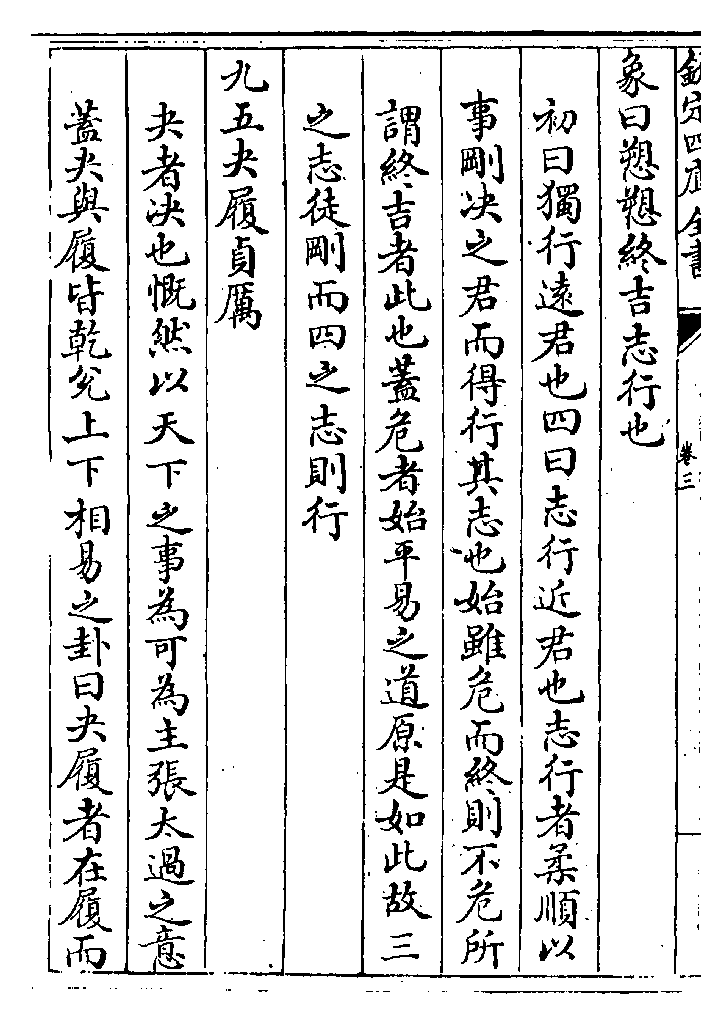 欽定四庫全書
卷三
象曰愬愬終吉志行也
初曰獨行遠君也四曰志行近君也志行者柔順以
事剛决之君而得行其志也始雖危而終則不危所
謂終吉者此也蓋危者始平易之道原是如此故三
之志徒剛而四之志則行
九五夬履貞厲
夬者决也慨然以天下之事為可為主張太過之意
蓋夬與履皆乾兌上下相易之卦曰夬履者在履而